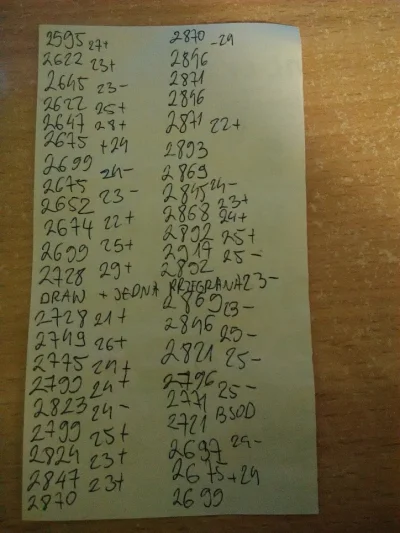 2595 27+
2622 23+
2645 23-
2622 25+
2647 28+
2675 +24
2699
2675 24-
2652 23-
2674 22+
2699 25+
2728 29+
DRAW + JEDNA PRZEGRANA 23-
2728 21+
2749 26+
2775 24+
2799 24+
2823 24-
2799 25+
2824 23+
2847 23+
2870
2870 -24
2846
2871
2846
2871 22+
2893
2869
2845 24-
2868 23+
2892 24+
2917 25+
2892 25-
2869 23-
2846
2821 25-
2796 25-
2771 25-
2721 BSOD
2697 24-
2675 +24
2699